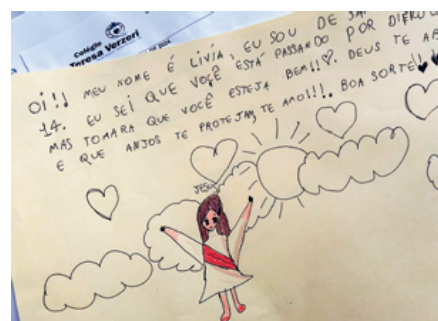 Colégio
Teresa Verzeri
OI!! MEU NOME É LIVIA, EU SOU DE
14. EU SEI QUE VOCÊ ESTÁ PASSANDO POR
MAS TOMARA QUE VOCÊ ESTEJA BEM!!♡. DEUS TE
E QUE ANJOS TE PROTEJAM, TE AMO!!!. BOA SORTE!
JESUS